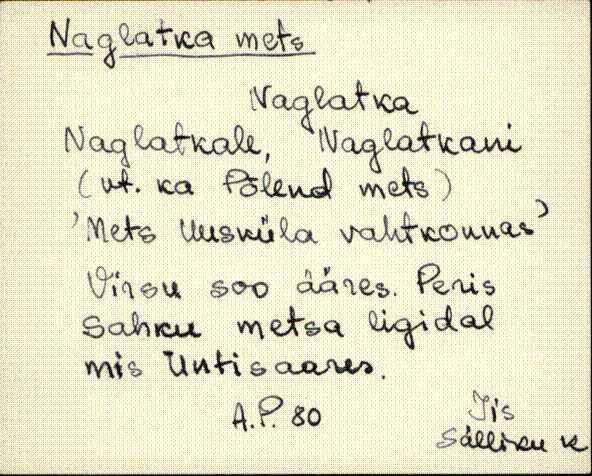 Naglatka mets
Naglatka
Naglatkale, Naglatkani
(vt. ka Põlend mets)
'Mets Uusküla vahtkonnas'
Virsu soo ääres. Peris
Sahku metsa ligidal
mis Untisaares.
A.P. 80
Iis
Sälliku k